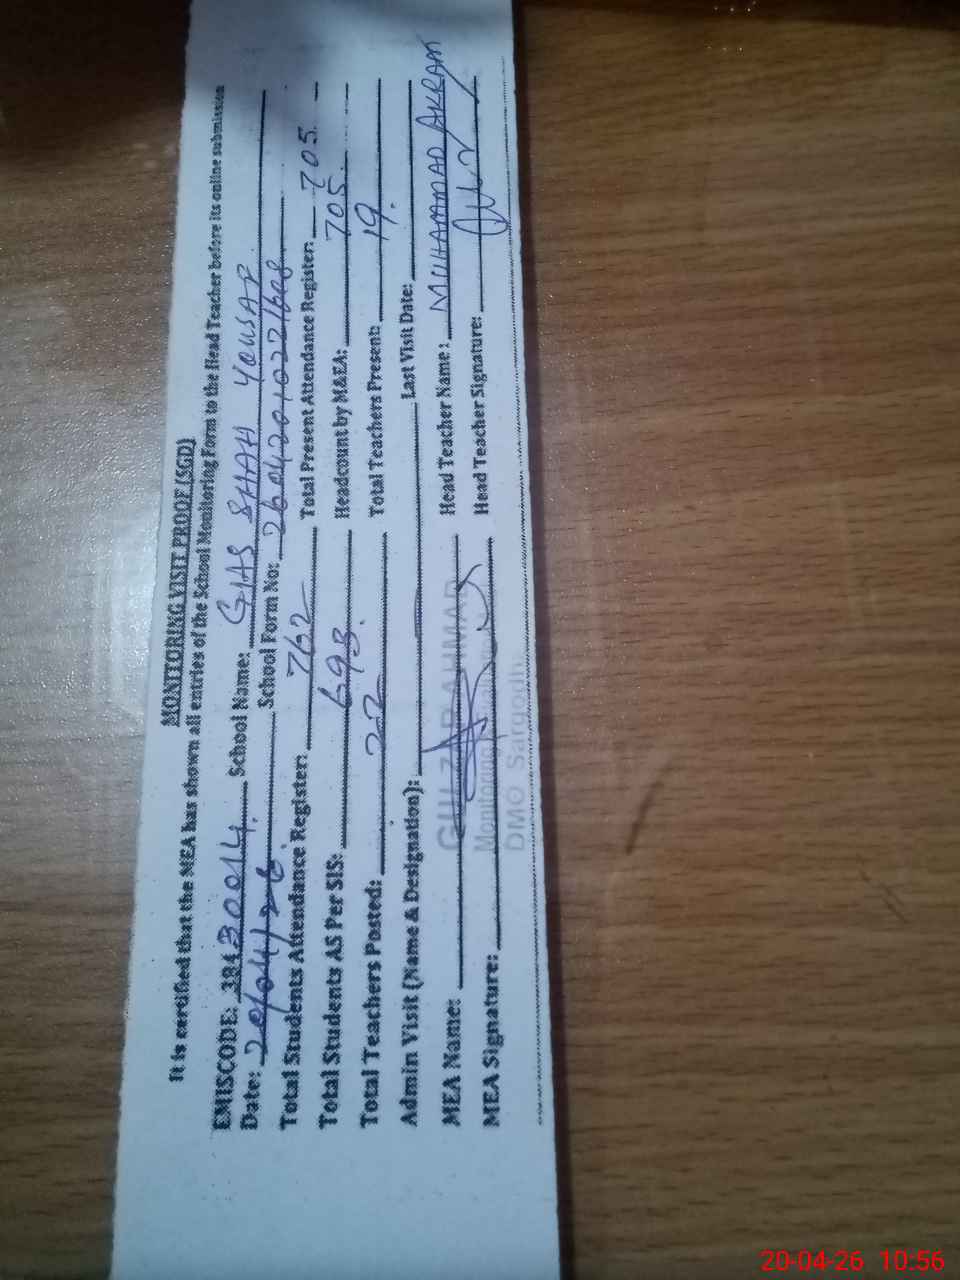 MONITORING VISIT PROOF (SGD)
It is certified that the MEA has shown all entries of the School Monitoring Form to the Head Teacher before its online submission
EMISCODE: 38430014. School Name: GHS SHAH YOUSAF
Date: 20/04/26. School Form No: 2604201010221608
Total Students Attendance Register: 762 Total Present Attendance Register: 705.
Total Students AS Per SIS: 693. Headcount by M&EA: 705
Total Teachers Posted: 22 Total Teachers Present: 19.
Admin Visit (Name & Designation): Last Visit Date:
MEA Name: Head Teacher Name: MUHAMMAD AKRAM
MEA Signature: Head Teacher Signature:
GULZAR AHMAD
Monitoring
DMO Sargodha
20-04-26 10:56